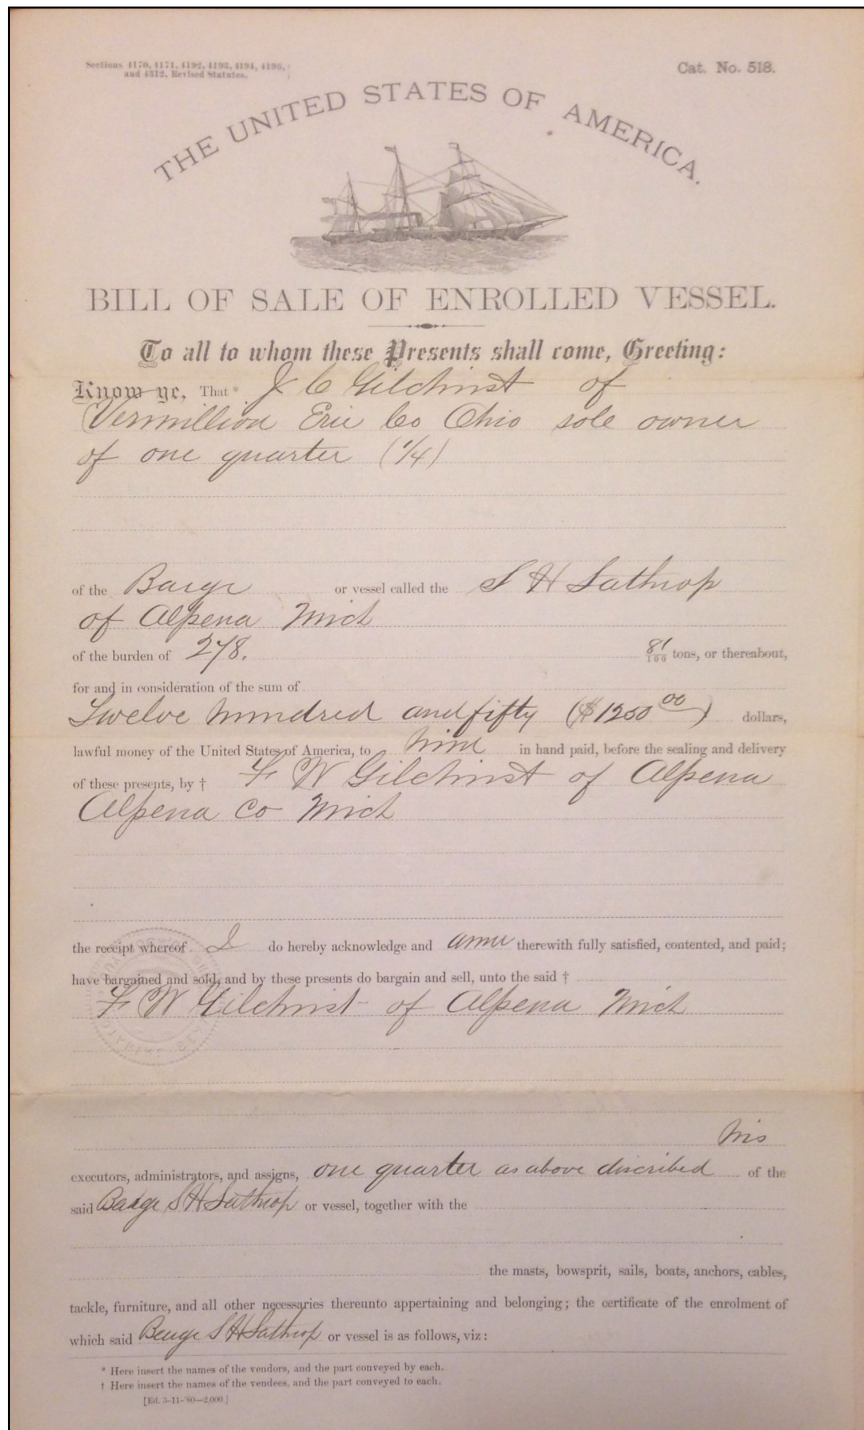 Sections 4170, 4171, 4192, 4193, 4194, 4196,
and 4312, Revised Statutes.
Cat. No. 518.
THE UNITED STATES OF AMERICA.
BILL OF SALE OF ENROLLED VESSEL.
To all to whom these Presents shall come, Greeting:
Know ye, That * J C Gilchrist of
Vermillion Erie Co Ohio sole owner
of one quarter (1/4)
of the Barge or vessel called the S H Lathrop
of Alpena Mich
of the burden of 278. 81/100 tons, or thereabout,
for and in consideration of the sum of
Twelve hundred and fifty ($1250 00) dollars,
lawful money of the United States of America, to him in hand paid, before the sealing and delivery
of these presents, by † F W Gilchrist of Alpena
Alpena Co Mich
the receipt whereof I do hereby acknowledge and am therewith fully satisfied, contented, and paid;
have bargained and sold, and by these presents do bargain and sell, unto the said †
F W Gilchrist of Alpena Mich
his
executors, administrators, and assigns, one quarter as above discribed of the
said Barge S H Lathrop or vessel, together with the
the masts, bowsprit, sails, boats, anchors, cables,
tackle, furniture, and all other necessaries thereunto appertaining and belonging; the certificate of the enrolment of
which said Barge S H Lathrop or vessel is as follows, viz:
* Here insert the names of the vendors, and the part conveyed by each.
† Here insert the names of the vendees, and the part conveyed to each.
[Ed. 3-11-'90—2,000.]